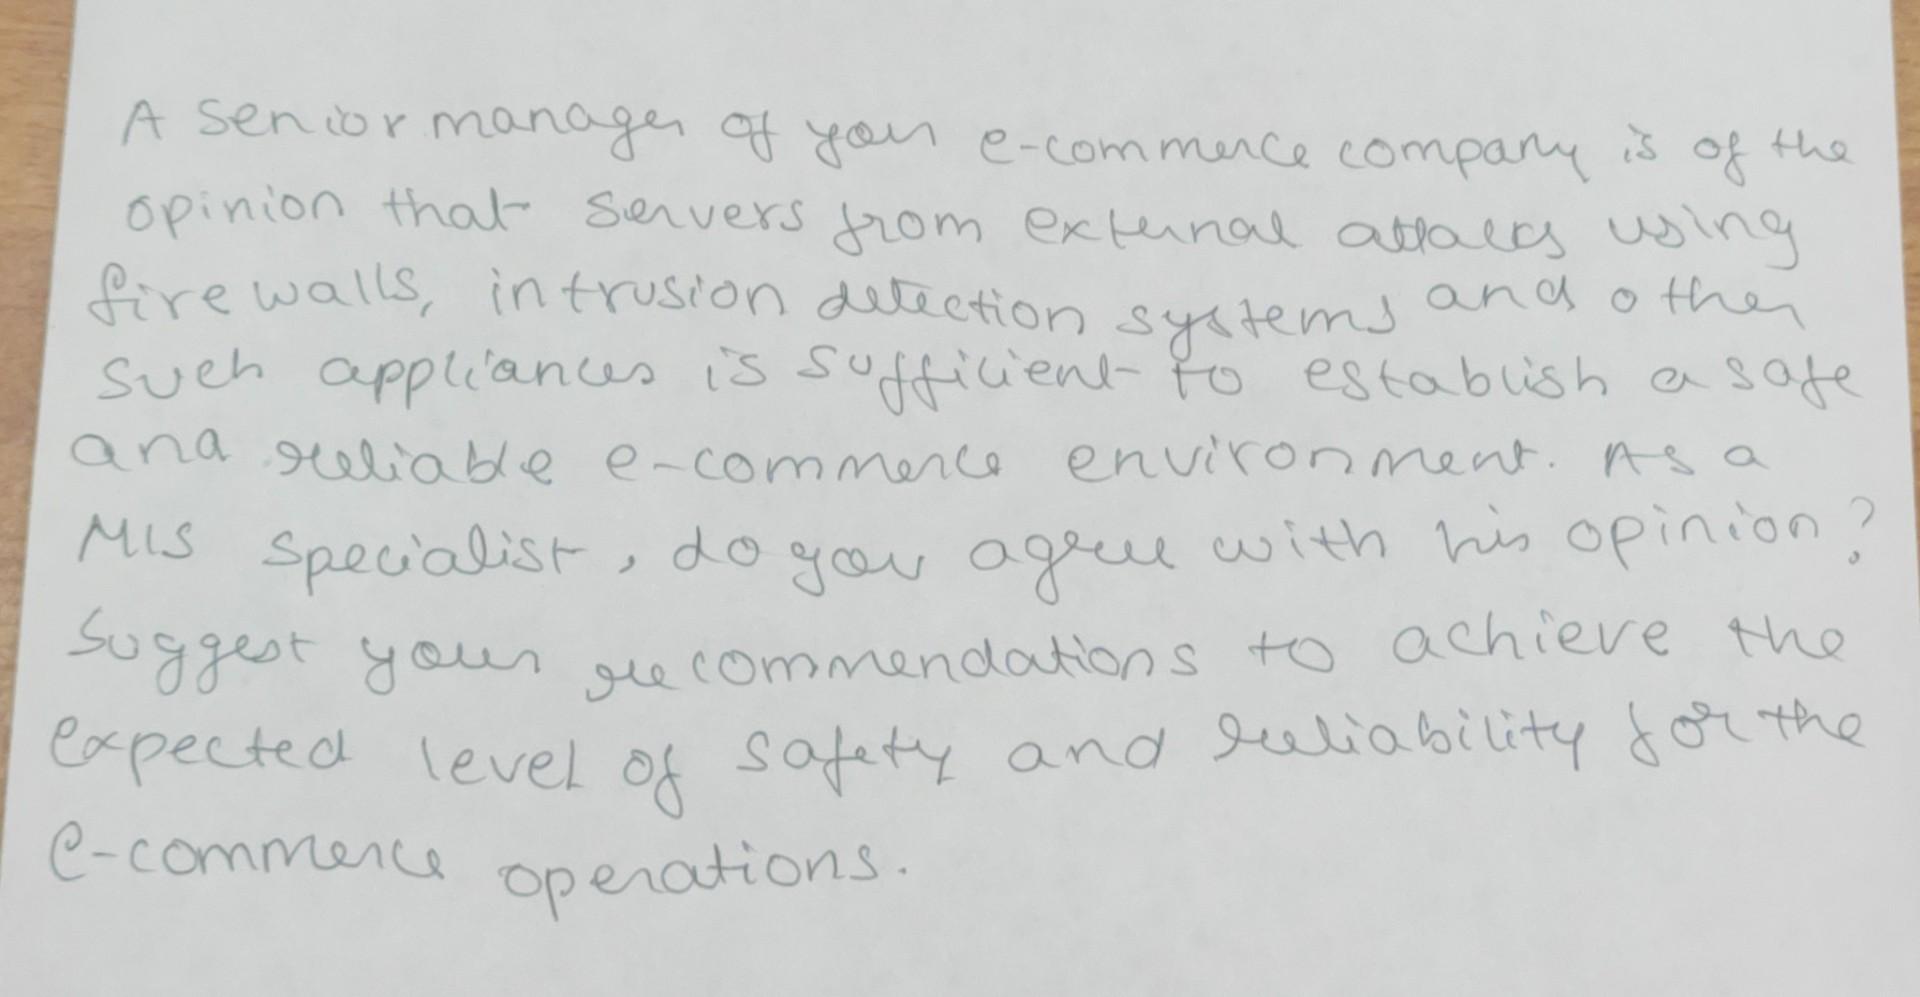 A senior manager of your e-commerce company is of the
opinion that servers from external attacks using
firewalls, intrusion detection systems and other
such appliances is sufficient to establish a safe
and reliable e-commerce environment. As a
MIS specialist, do you agree with his opinion?
Suggest your recommendations to achieve the
expected level of safety and reliability for the
e-commerce operations.